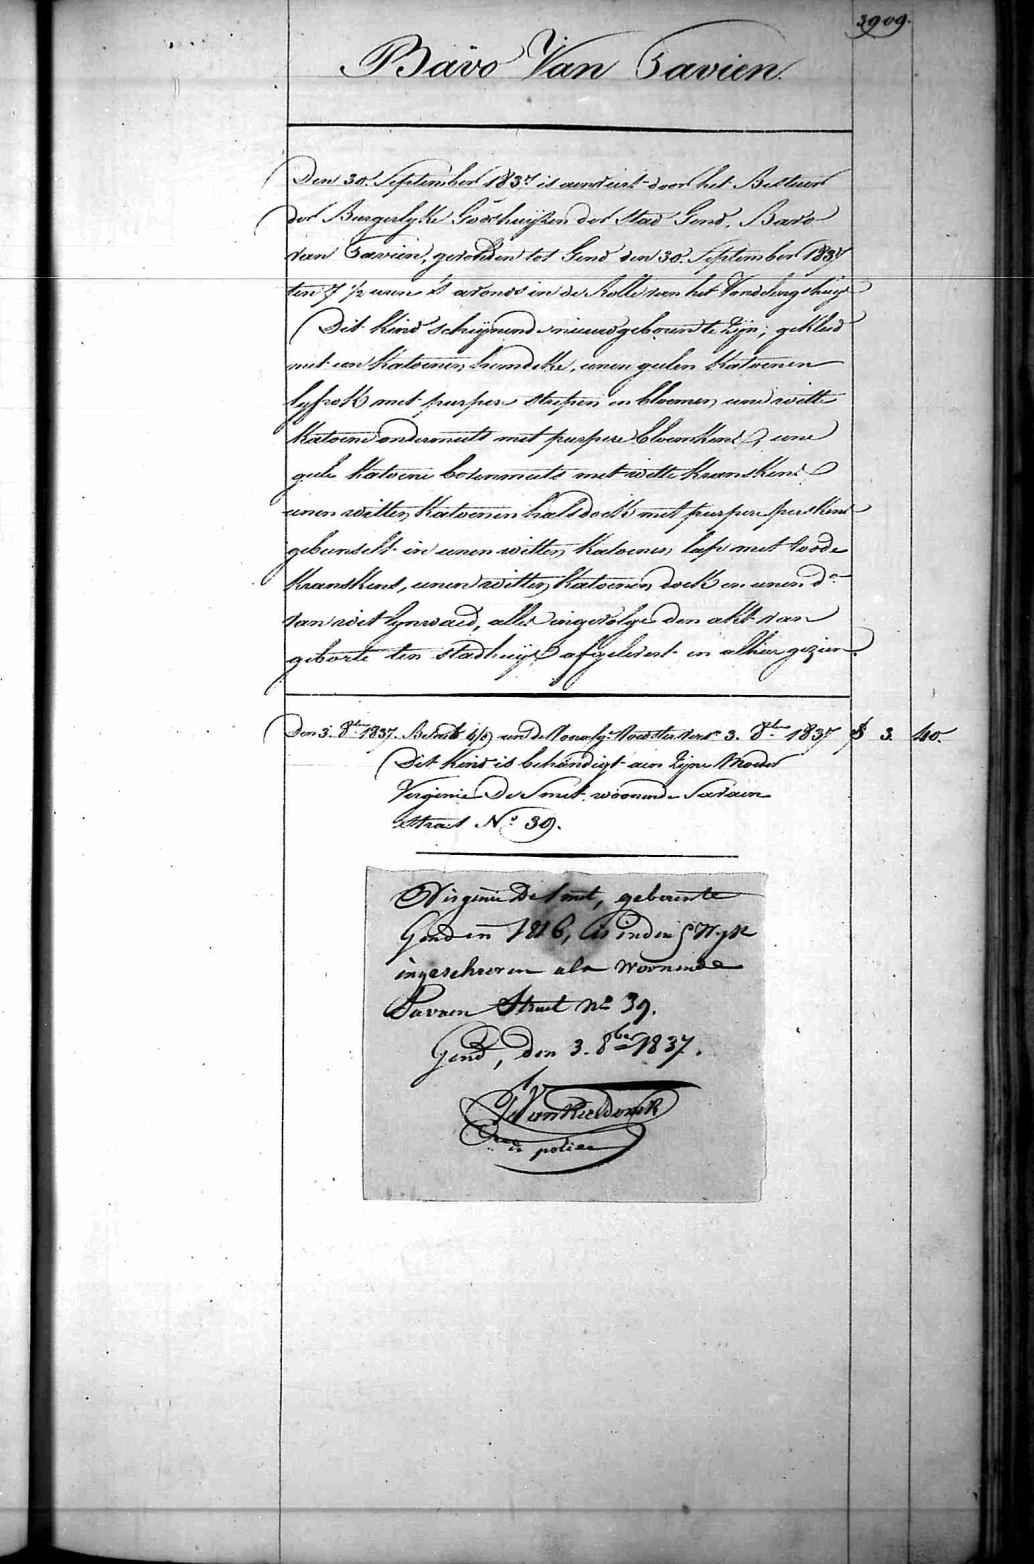 3909.
Bavo Van Gavien.
Den 30. September 1837 is aenveirt door het Bestuur
der Burgerlyke Godshuijzen der Stad Gend, Bavo
van Gavien, gevonden tot Gend den 30. September 1837
ten 7 1/2 uren 's avonds in de Rolle van het Vondelingshuijs
Dit kind schijnende nieuwgeboren te zijn, gekleed
met een katoenen hemdeke, eenen geelen katoenen
lyfrok met purpere streepen en bloemen, eene witte
katoene ondermuts met purpere bloemkens, eene
geele katoene bovenmuts met witte kranskens
eenen witten katoenen halsdoek met purpere perkskens
gebunselt in eenen witten katoenen lap met roode
kranskens, eenen witten katoenen doek en eenen do
van wit lynwaed, alles ingevolge den akt van
geborte ten stadhuijse afgelevert en alhier gezien.
Den 3. 8ber 1837. Betaelt aen de Voedster 3. 8ber 1837 3. 40.
Dit Kind is behandigt aen zijne Moeder
Virginie De Smet, woonende Savaen
straet No 39.
Virginie De Smet, geboren te
Gend in 1816, is in den 5 Wyk
ingeschreven als woonende
Savaen Straet No 39.
Gend, den 3. 8ber 1837.
de police